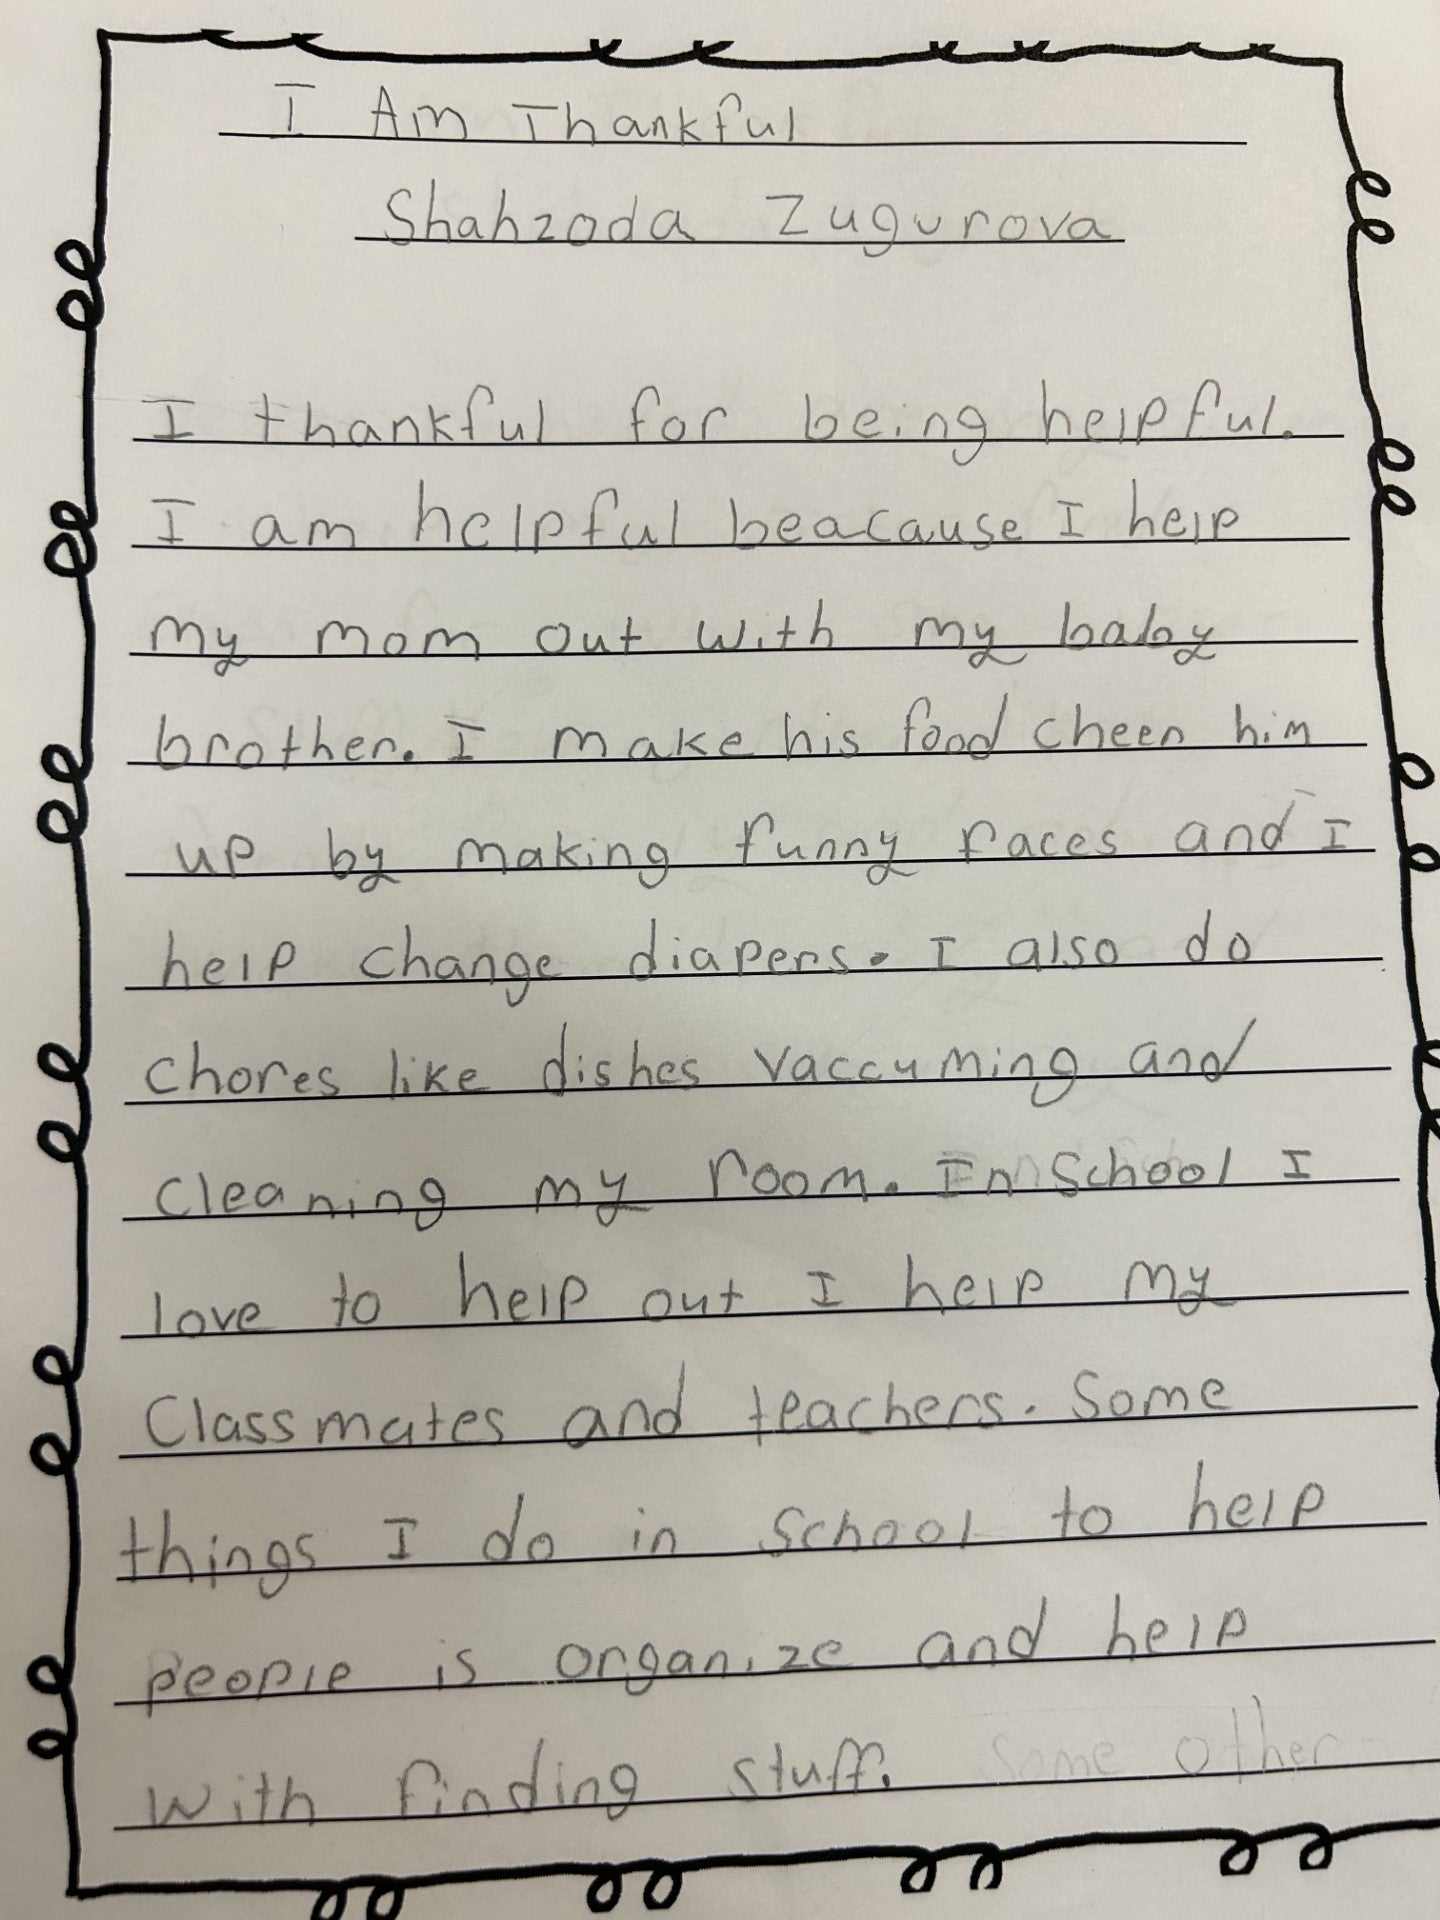 I Am Thankful
Shahzoda Zugurova
I thankful for being helpful.
I am helpful beacause I help
my mom out with my baby
brother. I make his food cheer him
up by making funny faces and I
help change diapers. I also do
chores like dishes vaccuming and
cleaning my room. In School I
love to help out I help my
Classmates and teachers. Some
things I do in School to help
people is organize and help
with finding stuff. Some other